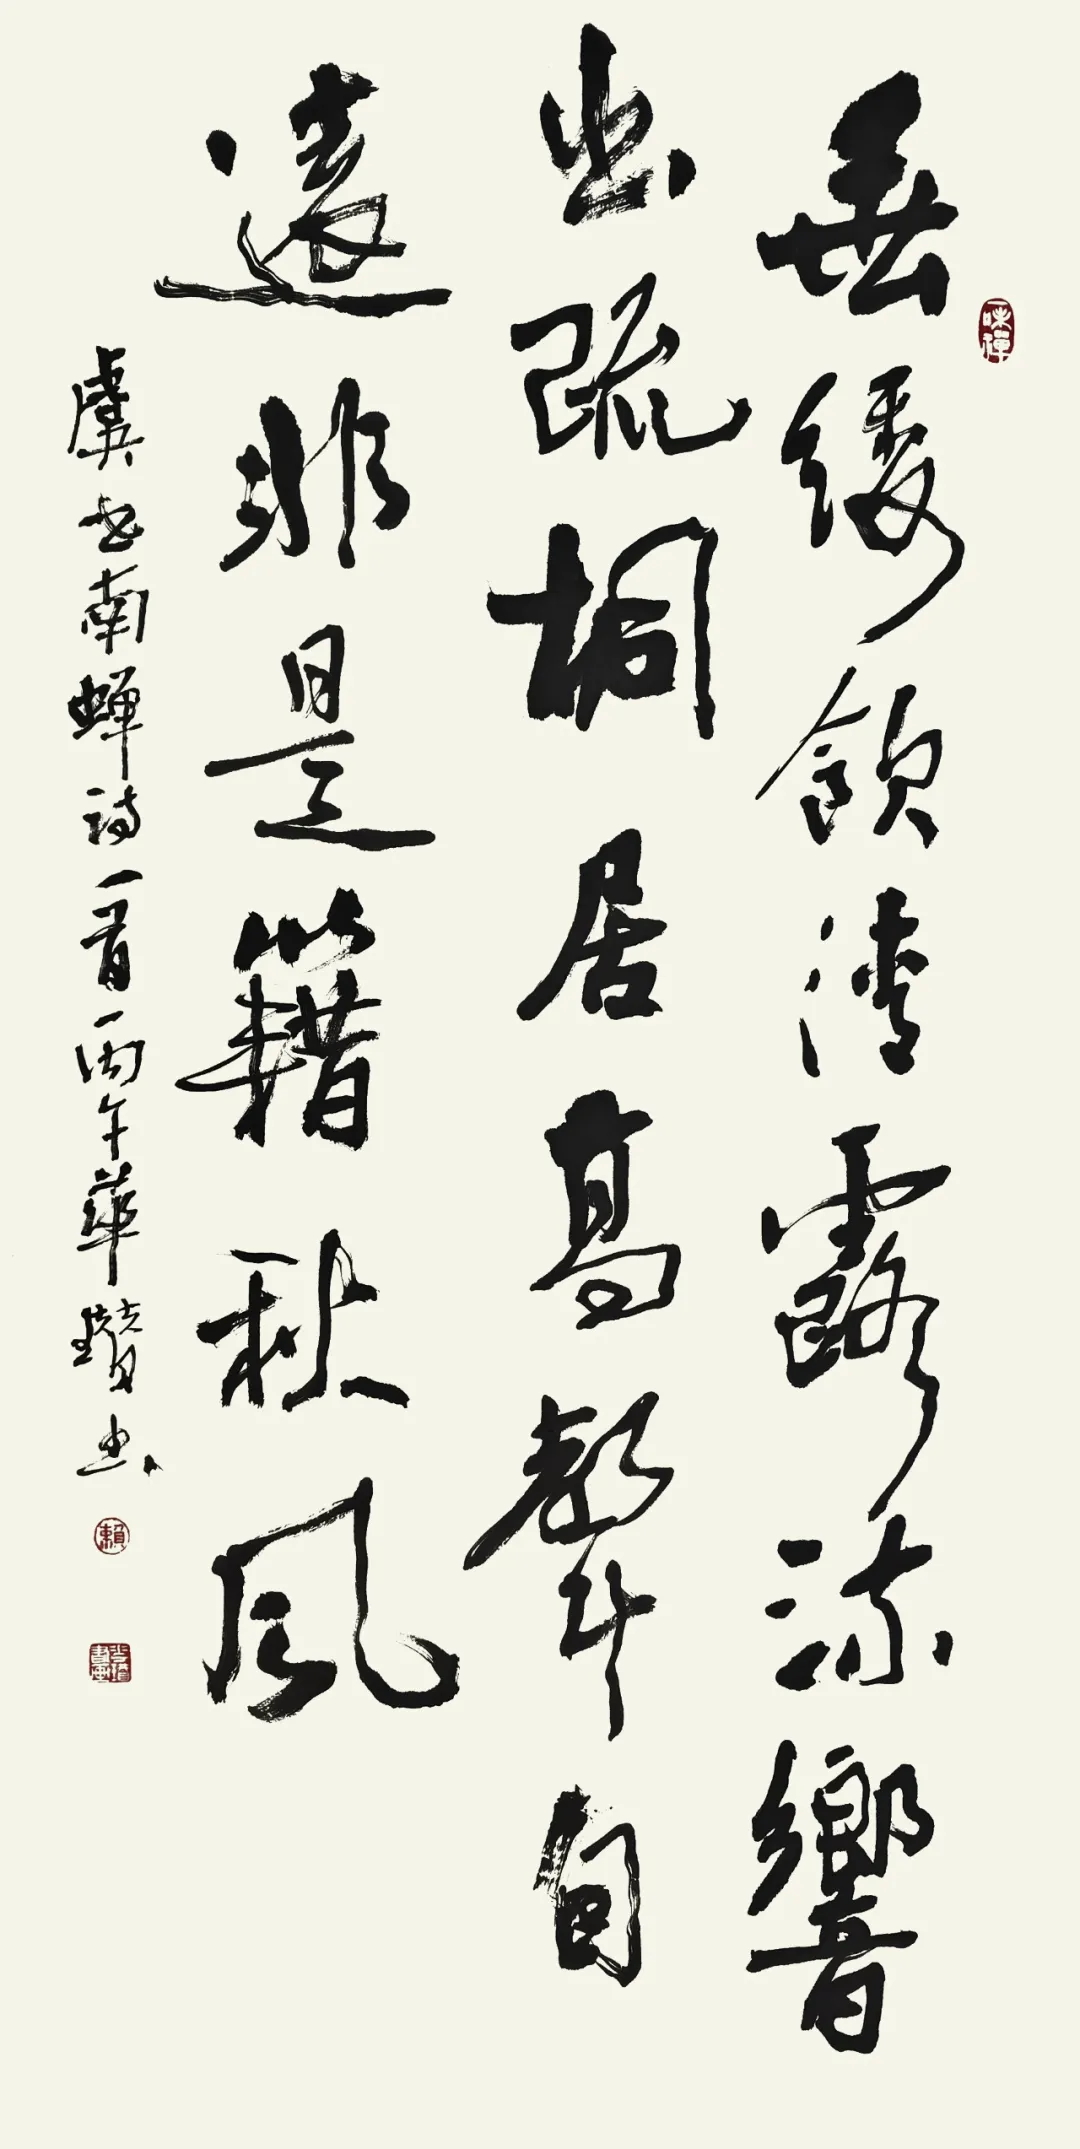 垂緌飲清露流響
出疏桐居高聲自
遠非是籍秋風
虞世南蟬詩一首丙午華瓚书
味禪
賴